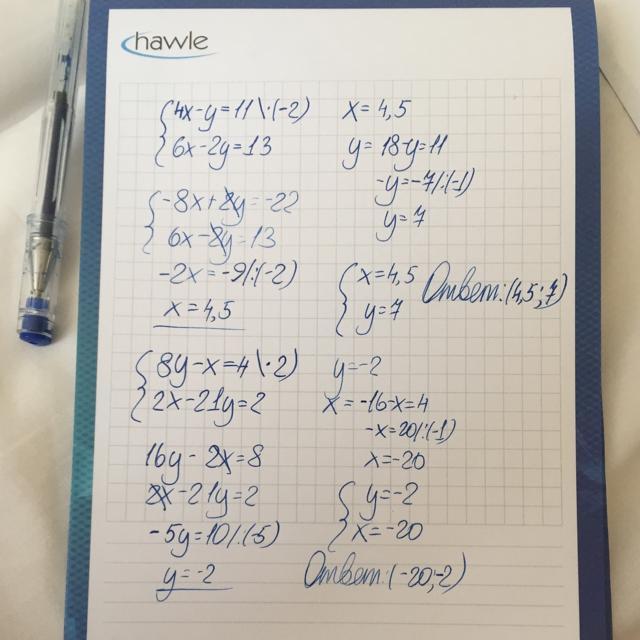 hawle
4x-y=11\·(-2)
6x-2y=13
-8x+2y=-22
6x-2y=13
-2x=-9/:(-2)
x=4,5
x=4,5
y=18-y=11
-y=-7/:(-1)
y=7
x=4,5
y=7
Ответ:(4,5;7)
8y-x=4\·2)
2x-21y=2
16y-2x=8
2x-21y=2
-5y=10/:(-5)
y=-2
y=-2
x=-16-x=4
-x=20/:(-1)
x=-20
y=-2
x=-20
Ответ:(-20;-2)